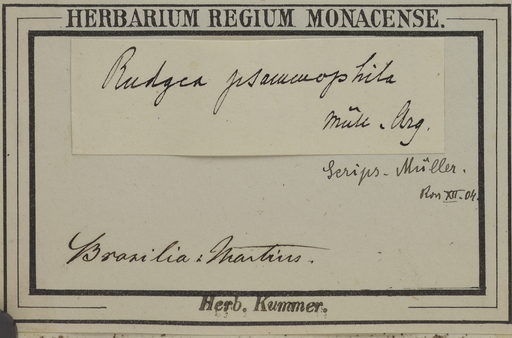 HERBARIUM REGIUM MONACENSE.
Rudgea psammophila
Müll. Arg.
Scrips. Müller.
Ros XII. 04.
Brasilia: Martius.
Herb. Kummer.